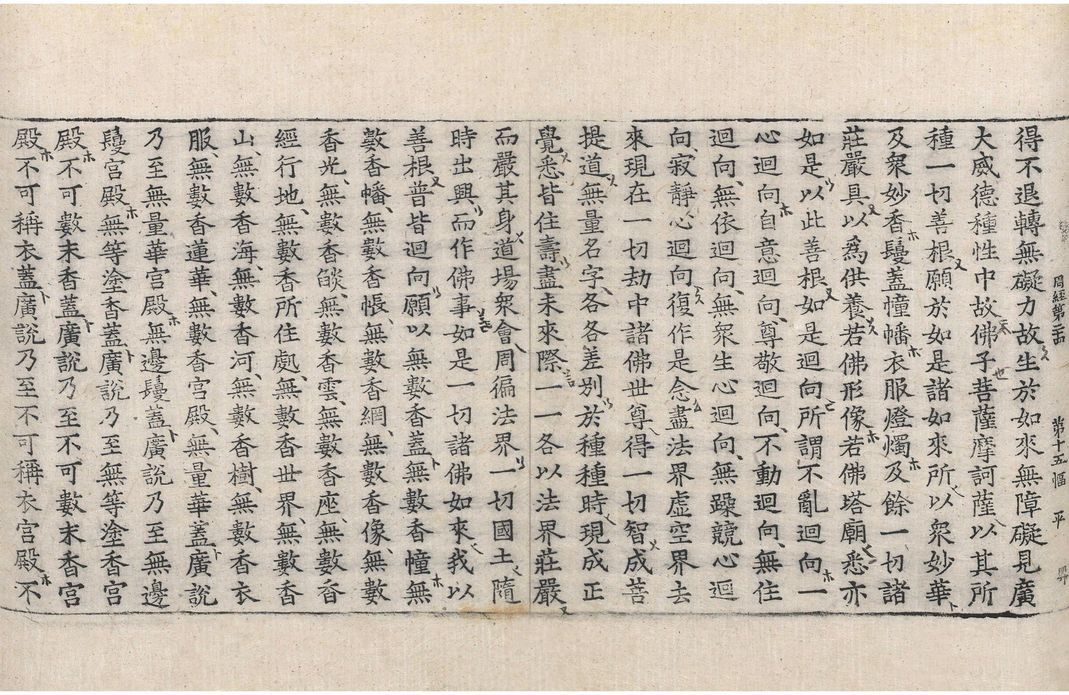 周經第二十四 第十五幅 平
得不退轉無礙力故生於如來無障礙見廣
大威德種性中故佛子菩薩摩訶薩以其所
種一切善根願於如是諸如來所以衆妙華
及衆妙香鬘蓋幢幡衣服燈燭及餘一切諸
莊嚴具以爲供養若佛形像若佛塔廟悉亦
如是以此善根如是迴向所謂不亂迴向一
心迴向自意迴向尊敬迴向不動迴向無住
迴向無依迴向無衆生心迴向無躁競心迴
向寂靜心迴向復作是念盡法界虛空界去
來現在一切劫中諸佛世尊得一切智成菩
提道無量名字各各差別於種種時現成正
覺悉皆住壽盡未來際一一各以法界莊嚴
而嚴其身道場衆會周徧法界一切國土隨
時出興而作佛事如是一切諸佛如來我以
善根普皆迴向願以無數香蓋無數香幢無
數香幡無數香帳無數香網無數香像無數
香光無數香燄無數香雲無數香座無數香
經行地無數香所住處無數香世界無數香
山無數香海無數香河無數香樹無數香衣
服無數香蓮華無數香宮殿無量華蓋廣說
乃至無量華宮殿無邊鬘蓋廣說乃至無邊
鬘宮殿無等塗香蓋廣說乃至無等塗香宮
殿不可數末香蓋廣說乃至不可數末香宮
殿不可稱衣蓋廣說乃至不可稱衣宮殿不